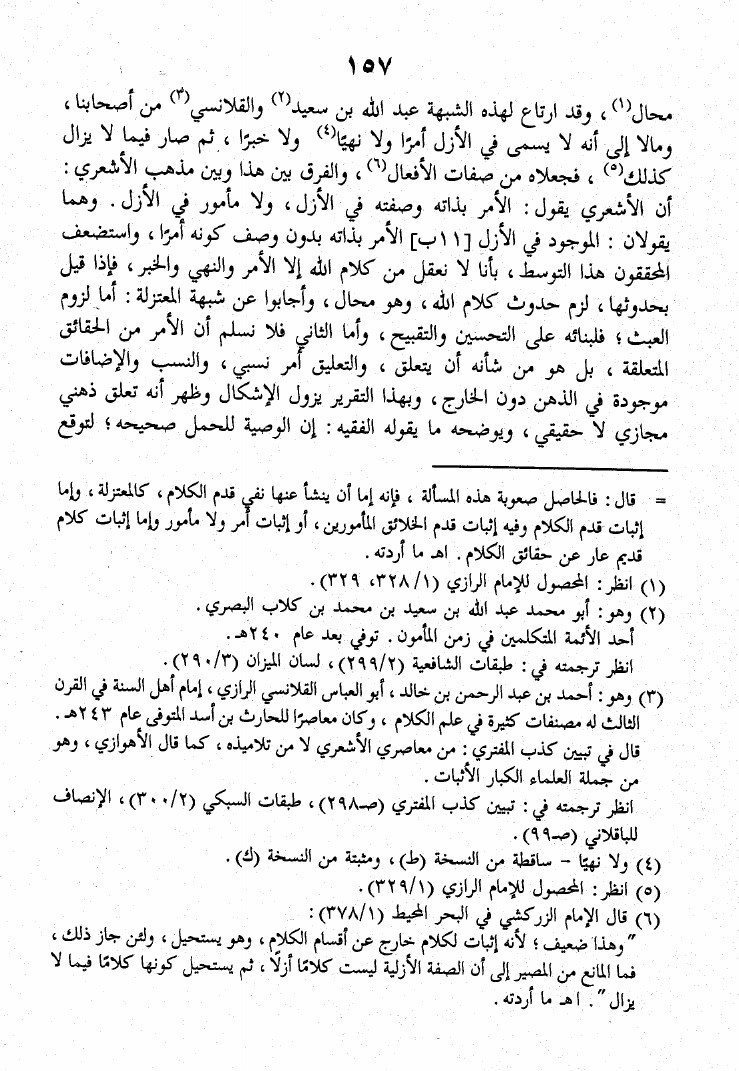 ١٥٧
محال(١) ، وقد ارتاع لهذه الشبهة عبد الله بن سعيد(٢) والقلانسي(٣) من أصحابنا ،
ومالا إلى أنه لا يسمى في الأزل أمرًا ولا نهيًا(٤) ولا خبرًا ، ثم صار فيما لا يزال
كذلك(٥) ، فجعلاه من صفات الأفعال(٦) ، والفرق بين هذا وبين مذهب الأشعري :
أن الأشعري يقول : الأمر بذاته وصفته في الأزل ، ولا مأمور في الأزل . وهما
يقولان : الموجود في الأزل [١١ب] الأمر بذاته بدون وصف كونه أمرًا ، واستضعف
المحققون هذا التوسط ، بأنا لا نعقل من كلام الله إلا الأمر والنهي والخبر ، فإذا قيل
بحدوثها ، لزم حدوث كلام الله ، وهو محال ، وأجابوا عن شبهة المعتزلة : أما لزوم
العبث ؛ فلبنائه على التحسين والتقبيح ، وأما الثاني فلا نسلم أن الأمر من الحقائق
المتعلقة ، بل هو من شأنه أن يتعلق ، والتعليق أمر نسبي ، والنسب والإضافات
موجودة في الذهن دون الخارج ، وبهذا التقرير يزول الإشكال وظهر أنه تعلق ذهني
مجازي لا حقيقي ، ويوضحه ما يقوله الفقيه : إن الوصية للحمل صحيحه ؛ لتوقع
= قال : فالحاصل صعوبة هذه المسألة ، فإنه إما أن ينشأ عنها نفي قدم الكلام ، كالمعتزلة ، وإما
إثبات قدم الكلام وفيه إثبات قدم الخلائق المأمورين ، أو إثبات أمر ولا مأمور وإما إثبات كلام
قديم عار عن حقائق الكلام . اهـ ما أردته .
(١) انظر : المحصول للإمام الرازي (٣٢٨/١، ٣٢٩) .
(٢) وهو : أبو محمد عبد الله بن سعيد بن محمد بن كلاب البصري .
أحد الأئمة المتكلمين في زمن المأمون . توفي بعد عام ٢٤٠هـ .
انظر ترجمته في : طبقات الشافعية (٢٩٩/٢) ، لسان الميزان (٢٩٠/٣) .
(٣) وهو : أحمد بن عبد الرحمن بن خالد ، أبو العباس القلانسي الرازي ، إمام أهل السنة في القرن
الثالث له مصنفات كثيرة في علم الكلام ، وكان معاصرًا للحارث بن أسد المتوفى عام ٢٤٣هـ .
قال في تبيين كذب المفتري : من معاصري الأشعري لا من تلاميذه ، كما قال الأهوازي ، وهو
من جملة العلماء الكبار الأثبات .
انظر ترجمته في : تبيين كذب المفتري (صـ٢٩٨) ، طبقات السبكي (٣٠٠/٢) ، الإنصاف
للباقلاني (صـ٩٩) .
(٤) ولا نهيًا - ساقطة من النسخة (ط) ، ومثبتة من النسخة (ك) .
(٥) انظر : المحصول للإمام الرازي (٣٢٩/١) .
(٦) قال الإمام الزركشي في البحر المحيط (٣٧٨/١) :
"وهذا ضعيف ؛ لأنه إثبات لكلام خارج عن أقسام الكلام ، وهو يستحيل ، ولئن جاز ذلك ،
فما المانع من المصير إلى أن الصفة الأزلية ليست كلامًا أزلًا ، ثم يستحيل كونها كلامًا فيما لا
يزال" . اهـ ما أردته .